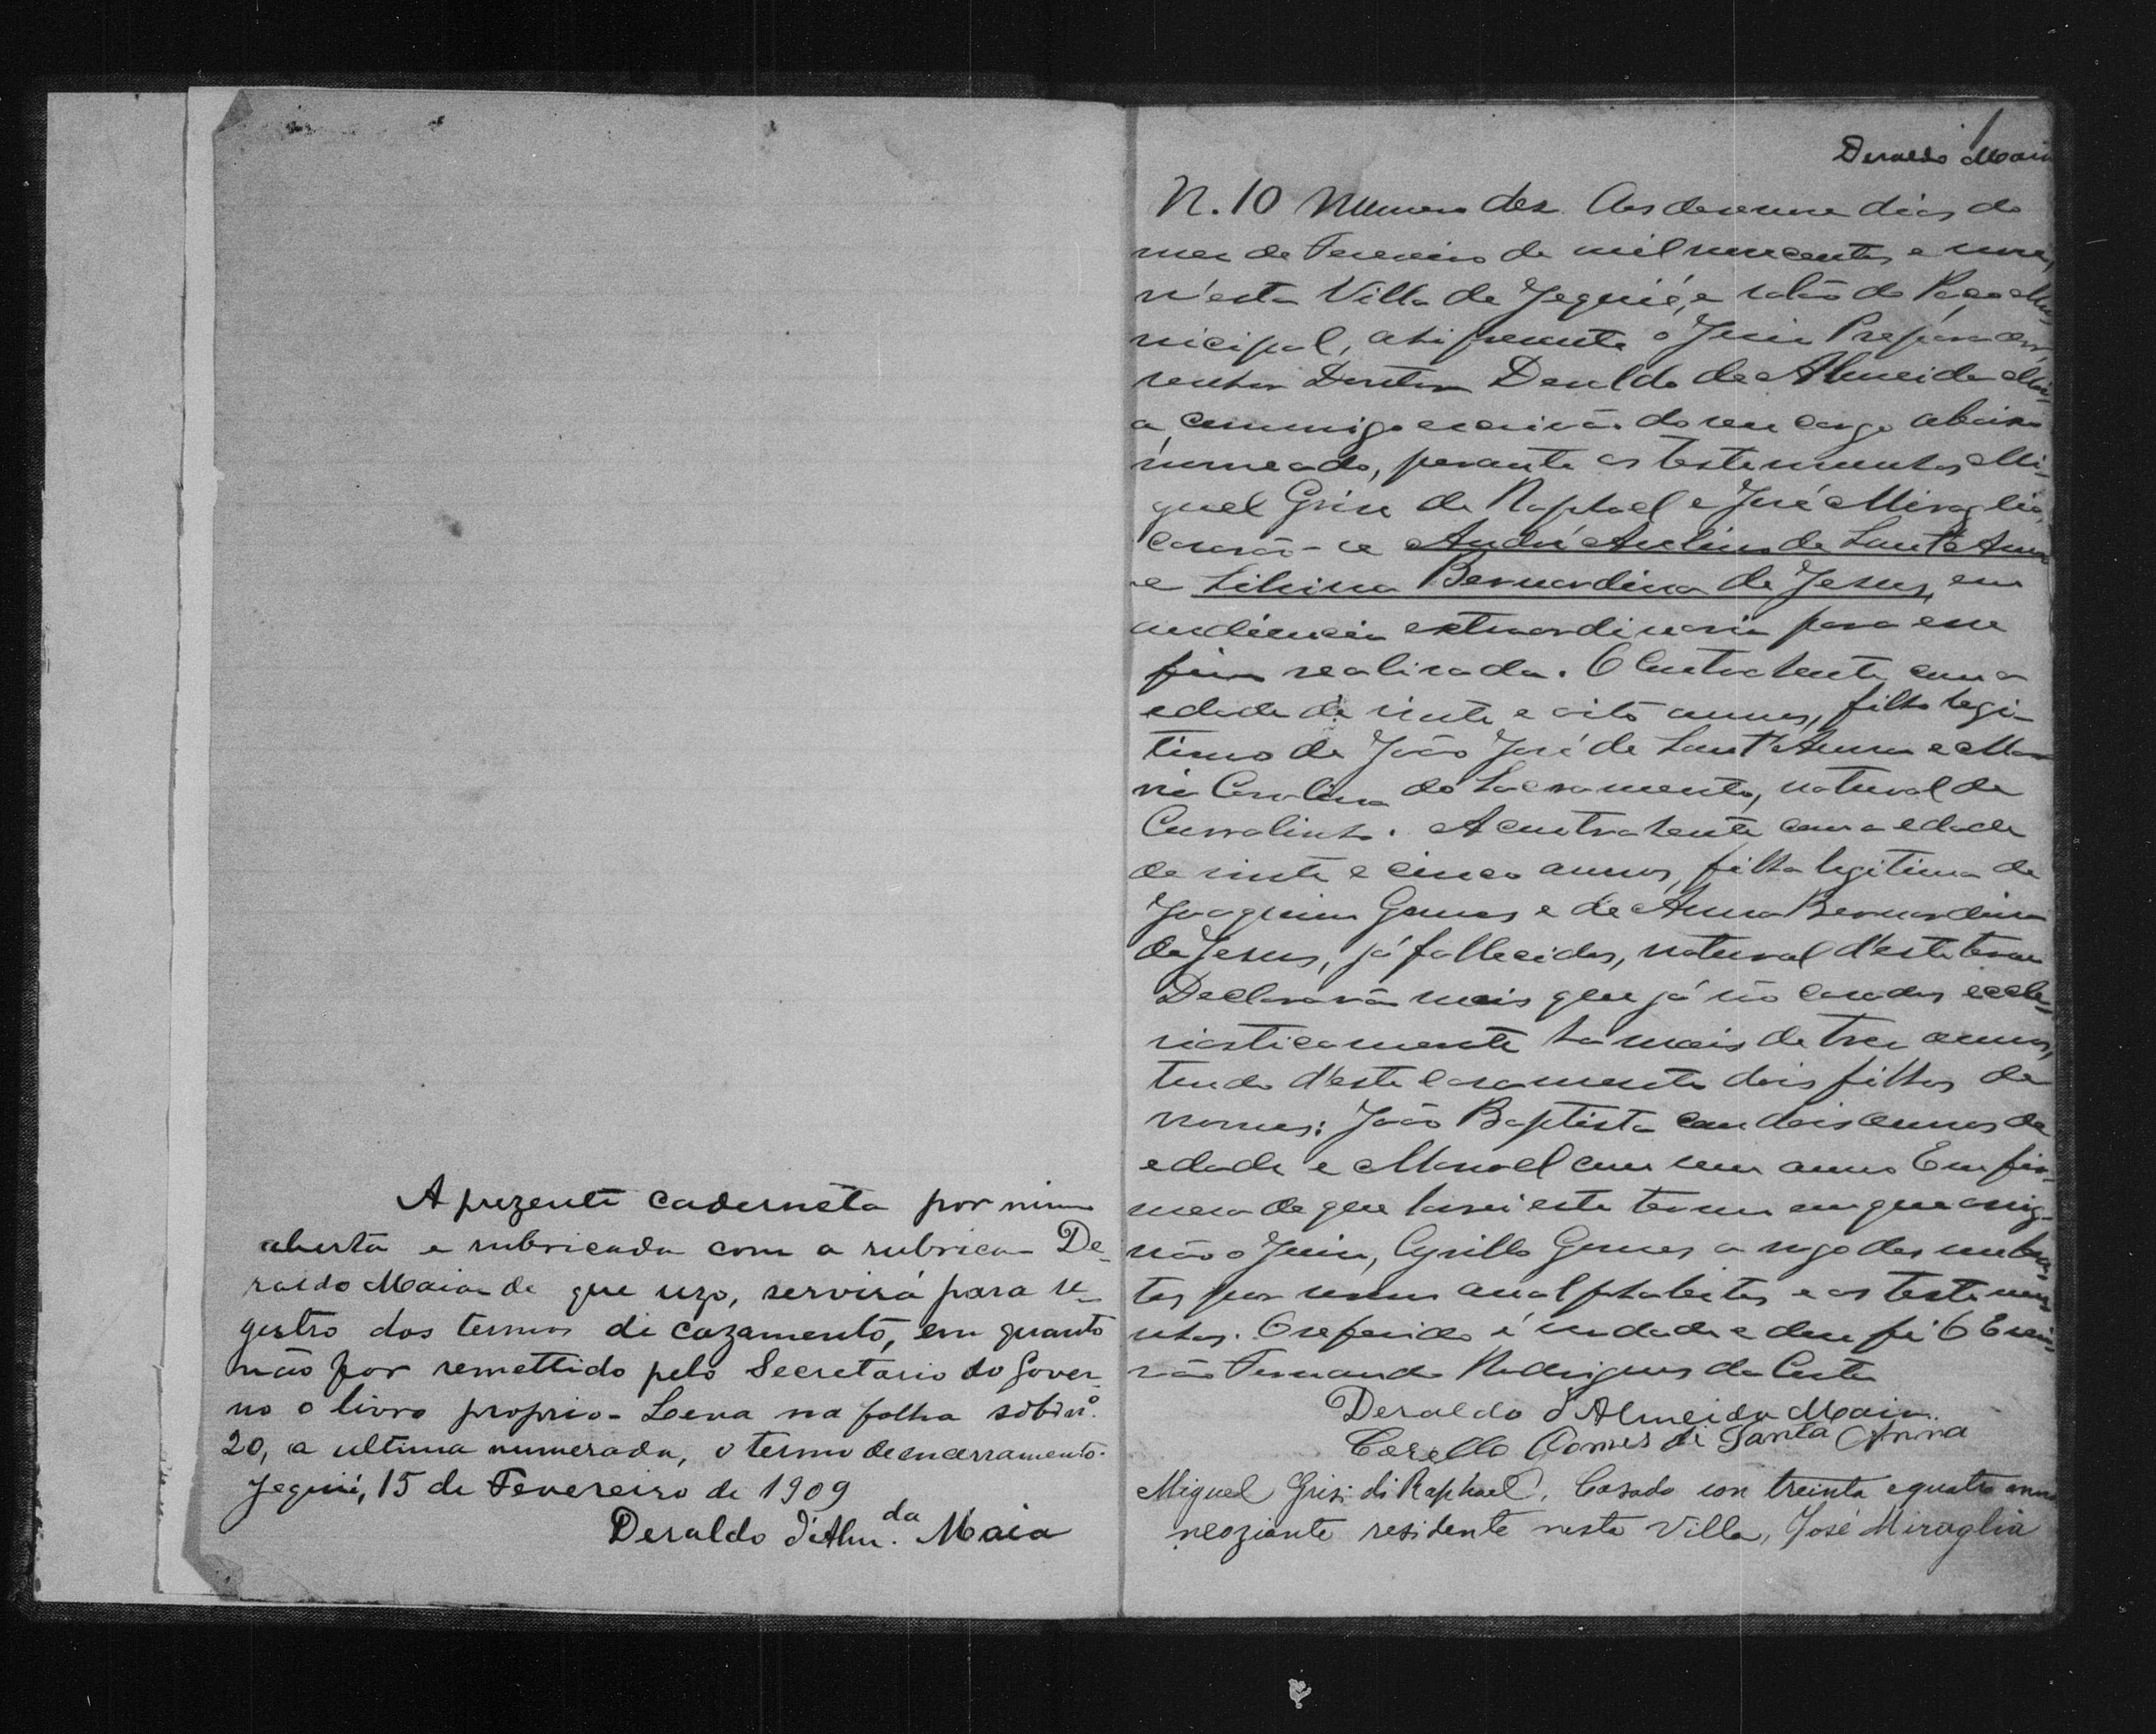 A prezente caderneta por mim
aberta e rubricada com a rubrica De-
raldo Maia de que uzo, servirá para re-
gistro dos termos de cazamento, em quanto
não for remettido pelo Secretario do Gover-
no o livro proprio - Leva na folha sob nº
20, a ultima numerada, o termo de encerramento.
Jequié, 15 de Fevereiro de 1909
Deraldo d'Alm.da Maia
1
Deraldo Maia
N. 10 Numero dez Aos desenove dias do
mez de Fevereiro de mil novecentos e nove,
n'esta Villa de Jequié, e salão do Paço Mu-
nicipal, ahi presente o Juiz Preparador,
senhor Doutor Deraldo de Almeida Mai-
a, commigo escrivão do seu cargo abaixo
nomeado, perante as testemunhas Mi-
guel Grisi de Raphael e José Miraglia,
casarão-se André Avelino de Sant'Anna
e Bernardina de Jesus, em
audiencia extraordinaria para esse
fim realisada. O Contrahente com a
edade de vinte e oito annos, filho legi-
timo de João José de Sant'Anna e Ma-
ria Carolina do Sacramento, natural de
Curralinho. A contrahente com a edade
de vinte e cinco annos, filha legitima de
Joaquim Gomes e de Anna Bernardina
de Jesus, já fallecidos, natural d'este termo
Declararão mais que já são casados eccle-
siasticamente ha mais de tres annos,
tendo d'este casamento dois filhos de
nomes: João Baptista com dois annos de
edade e Manoel com um anno Em fir-
mesa de que lavrei este termo em que assig-
não o Juiz, Cyrillo Gomes a rogo dos nuben-
tes por serem analphabetos e as testemu-
nhas. O referido é verdade e dou fé O Escri-
vão Fernando Rodrigues da Costa
Deraldo d'Almeida Maia.
Gomes de Santa Anna
Miguel Grisi di Raphael, Casado con treinta e quatro anno
neoziante residente nesta Villa, José Miraglia